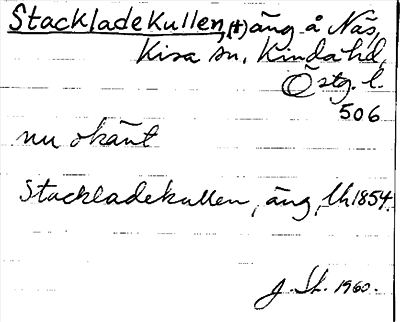 Stackladekullen, (†) äng å Näs,
Kisa sn, Kinda hd,
Östg. l.
506
nu okänt
Stackladekullen, äng, Lh 1854.
J. Sh. 1960.